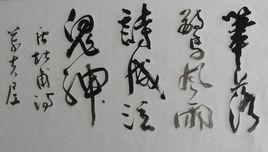 筆落
驚風雨
詩成泣
鬼神
唐杜甫詩